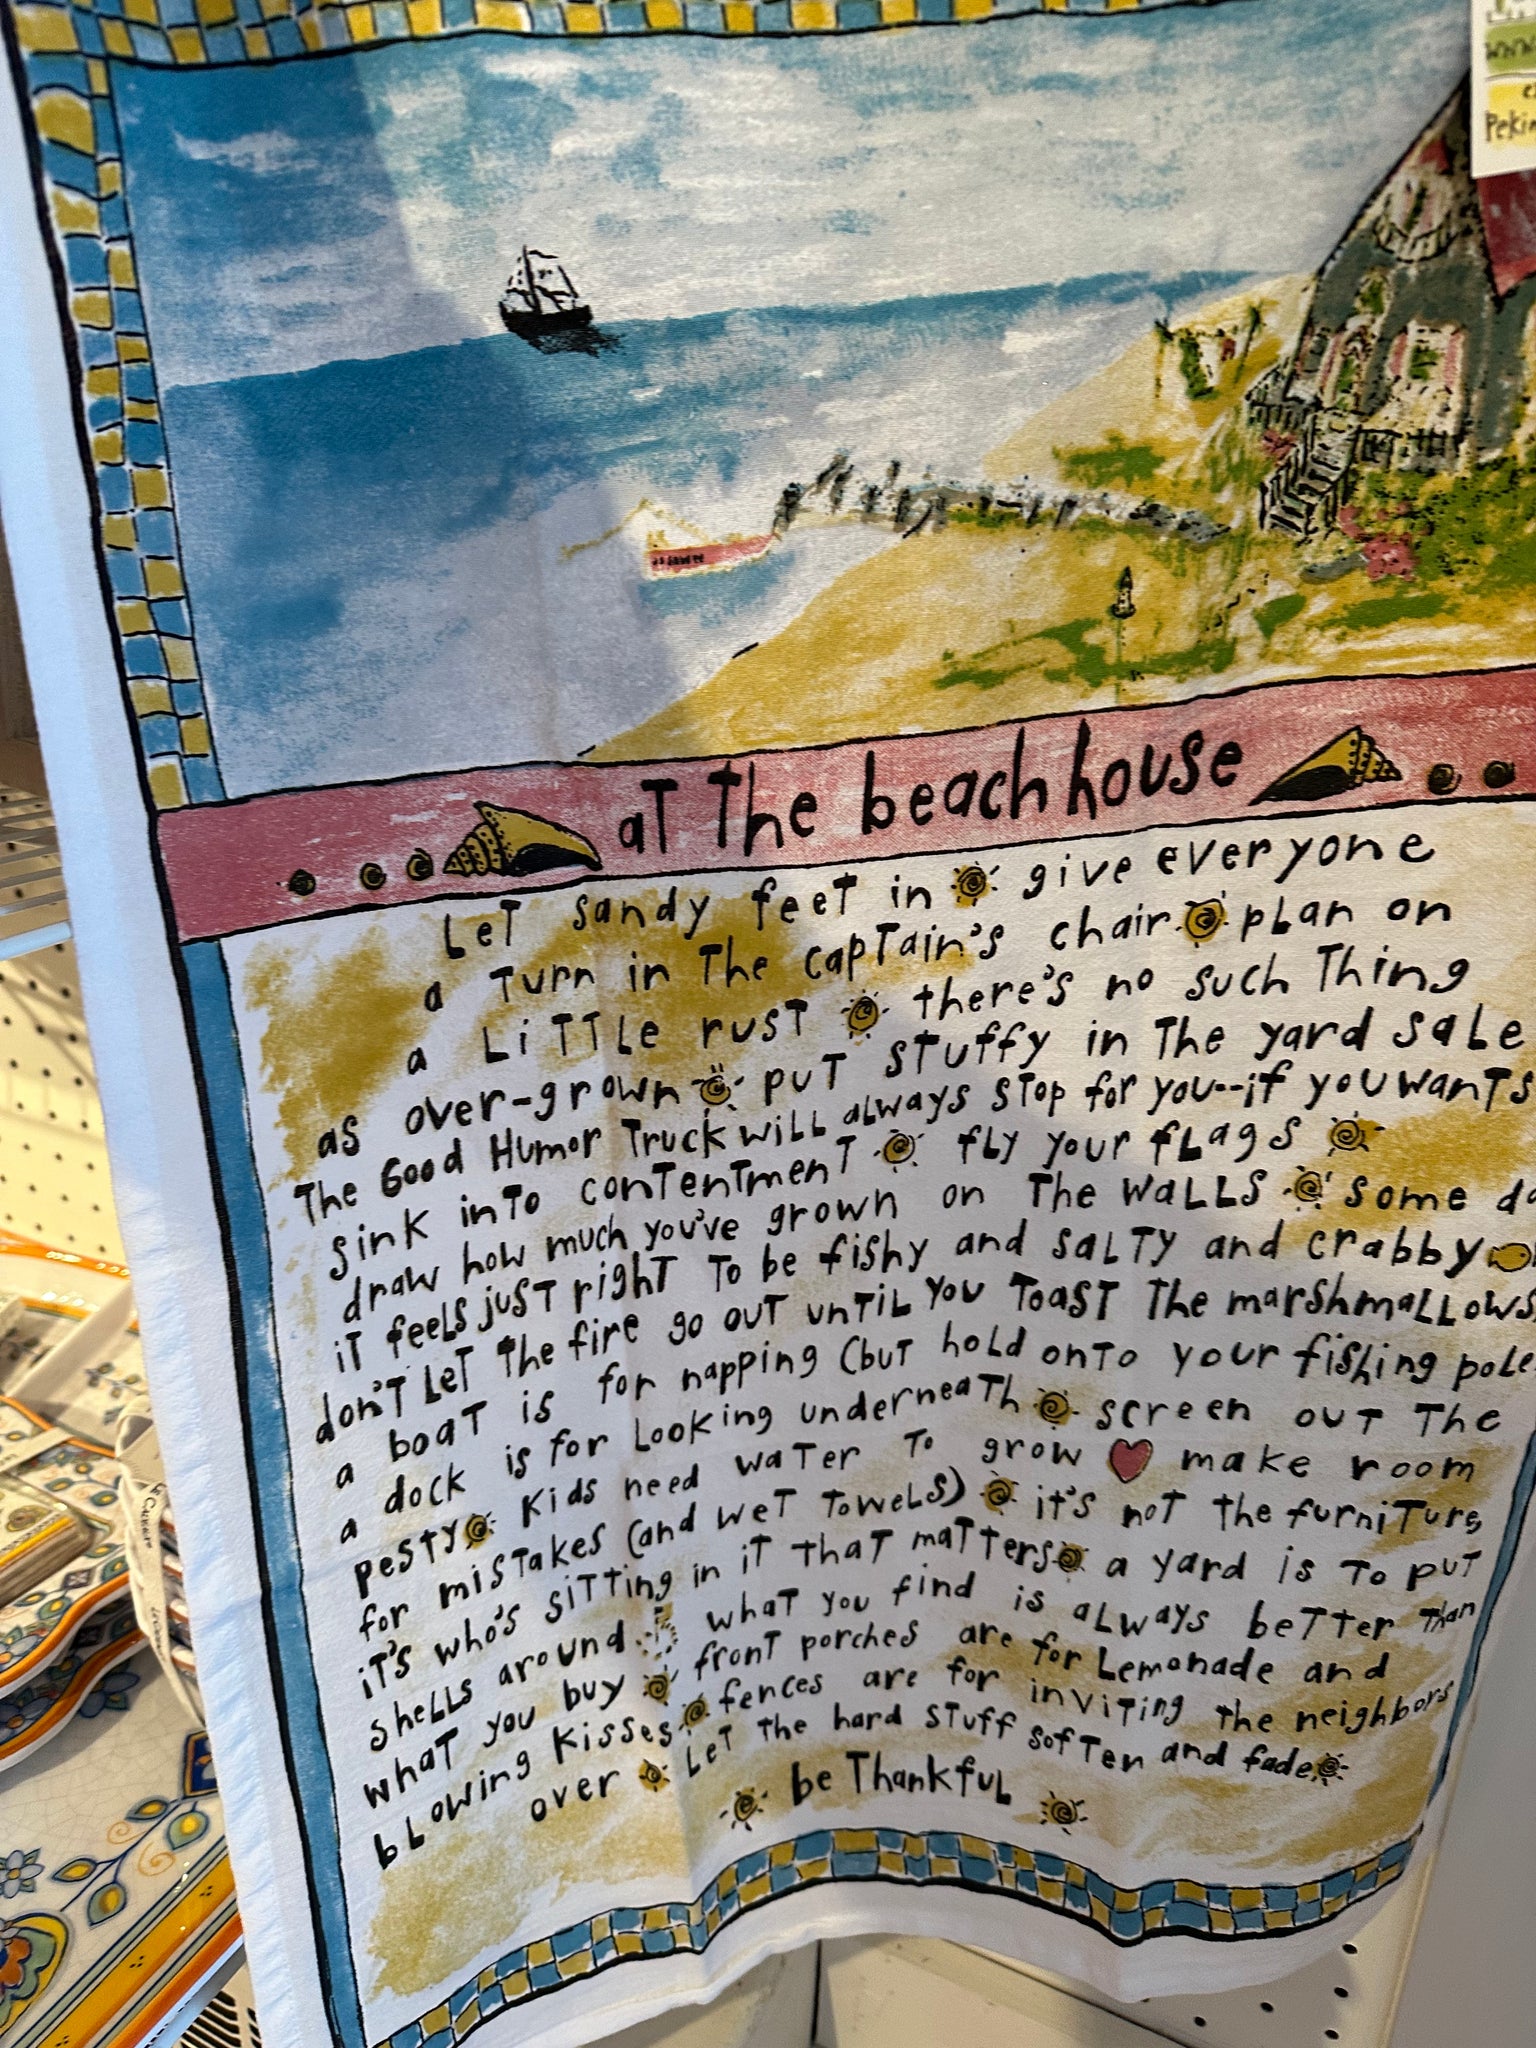 at the beach house
Let sandy feet in give everyone
a turn in the captain's chair plan on
a little rust there's no such thing
as over-grown put stuffy in the yard sale
the Good Humor Truck will always stop for you--if you wants
sink into contentment fly your flags
draw how much you've grown on the walls some da
it feels just right to be fishy and salty and crabby
don't let the fire go out until you toast the marshmallows
a boat is for napping (but hold onto your fishing pole
a dock is for looking underneath screen out the
pesty kids need water to grow make room
for mistakes (and wet towels) it's not the furniture,
it's who's sitting in it that matters a yard is to put
shells around what you find is always better than
what you buy front porches are for lemonade and
blowing kisses fences are for inviting the neighbors
over let the hard stuff soften and fade
be thankful